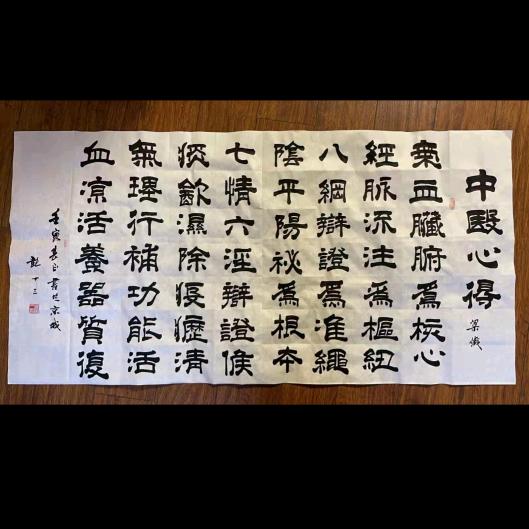 中醫心得
梁
氣血臟腑爲核心
經脈流注爲樞紐
八綱辯證爲准繩
陰平陽秘爲根本
七情六淫辯證候
痰飲濕除清
氣理行補功能活
血涼活養器質復
壬寅春書於京城